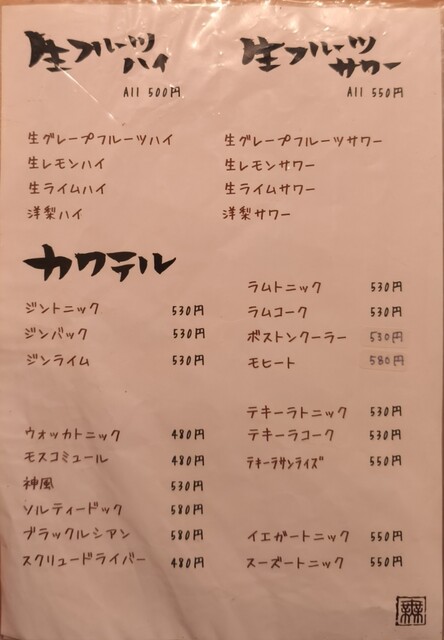 生フルーツ
ハイ
All 500円
生グレープフルーツハイ
生レモンハイ
生ライムハイ
洋梨ハイ
生フルーツ
サワー
All 550円
生グレープフルーツサワー
生レモンサワー
生ライムサワー
洋梨サワー
カクテル
ジントニック 530円
ジンバック 530円
ジンライム 530円
ウォッカトニック 480円
モスコミュール 480円
神風 530円
ソルティードック 580円
ブラックルシアン 580円
スクリュードライバー 480円
ラムトニック 530円
ラムコーク 530円
ボストンクーラー 530円
モヒート 580円
テキーラトニック 530円
テキーラコーク 530円
テキーラサンライズ 550円
イエガートニック 550円
スーズートニック 550円